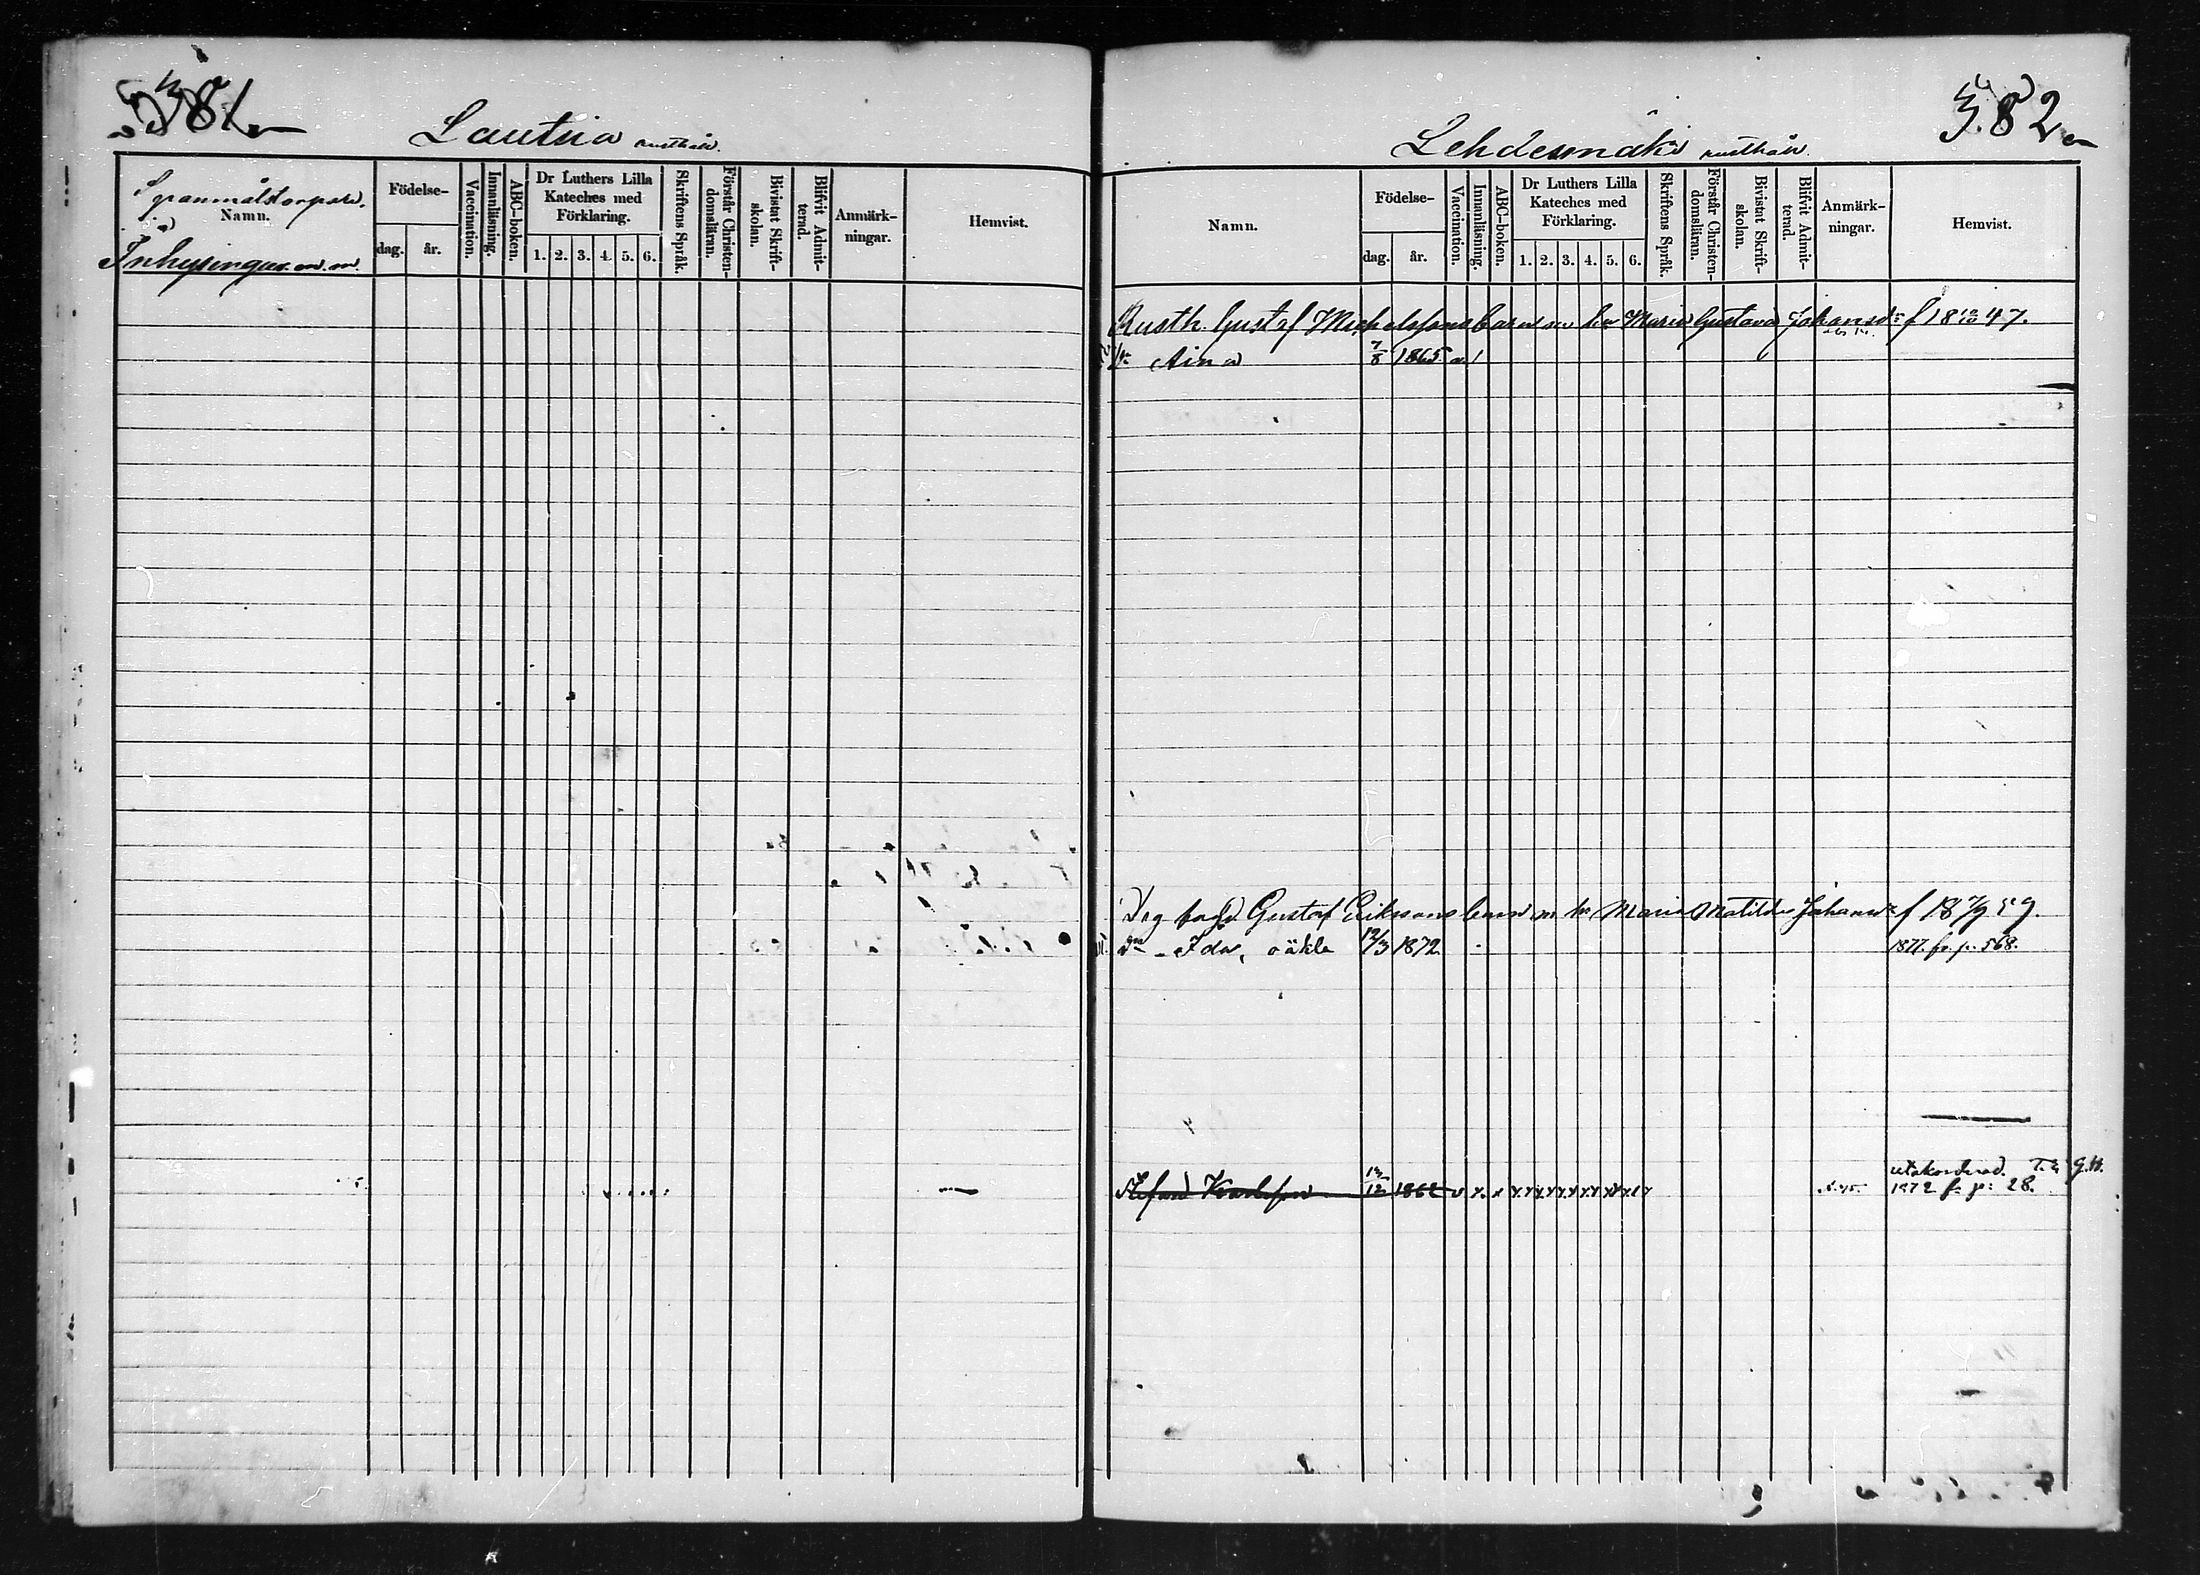 381
Lautsia rusthåll.
Spannmålstorpare,
Namn.
Inhysingar m. m.
Födelse-
dag. år.
Vaccination.
Innanläsning.
ABC-boken.
Dr Luthers Lilla
Kateches med
Förklaring.
1. 2. 3. 4. 5. 6.
Skriftens Språk.
Förstår Christen-
domsläran.
Bivistat Skrift-
skolan.
Blifvit Admit-
terad.
Anmärk-
ningar.
Hemvist.
382
Lehdesmäki rusthåll.
Namn.
Födelse-
dag. år.
Vaccination.
Innanläsning.
ABC-boken.
Dr Luthers Lilla
Kateches med
Förklaring.
1. 2. 3. 4. 5. 6.
Skriftens Språk.
Förstår Christen-
domsläran.
Bivistat Skrift-
skolan.
Blifvit Admit-
terad.
Anmärk-
ningar.
Hemvist.
Rusth. Gustaf Michelssons barn m Maria Gustava Johansd:r f 18 47.
Aina 7/8 1865
Gustaf Erikssons barn m h Maria Matilda Johansd:r f 18 59.
Ida, oäkta 12/3 1872 1877. fr. p. 568.
Karlsson 12 1862 1872 fr. p: 28.